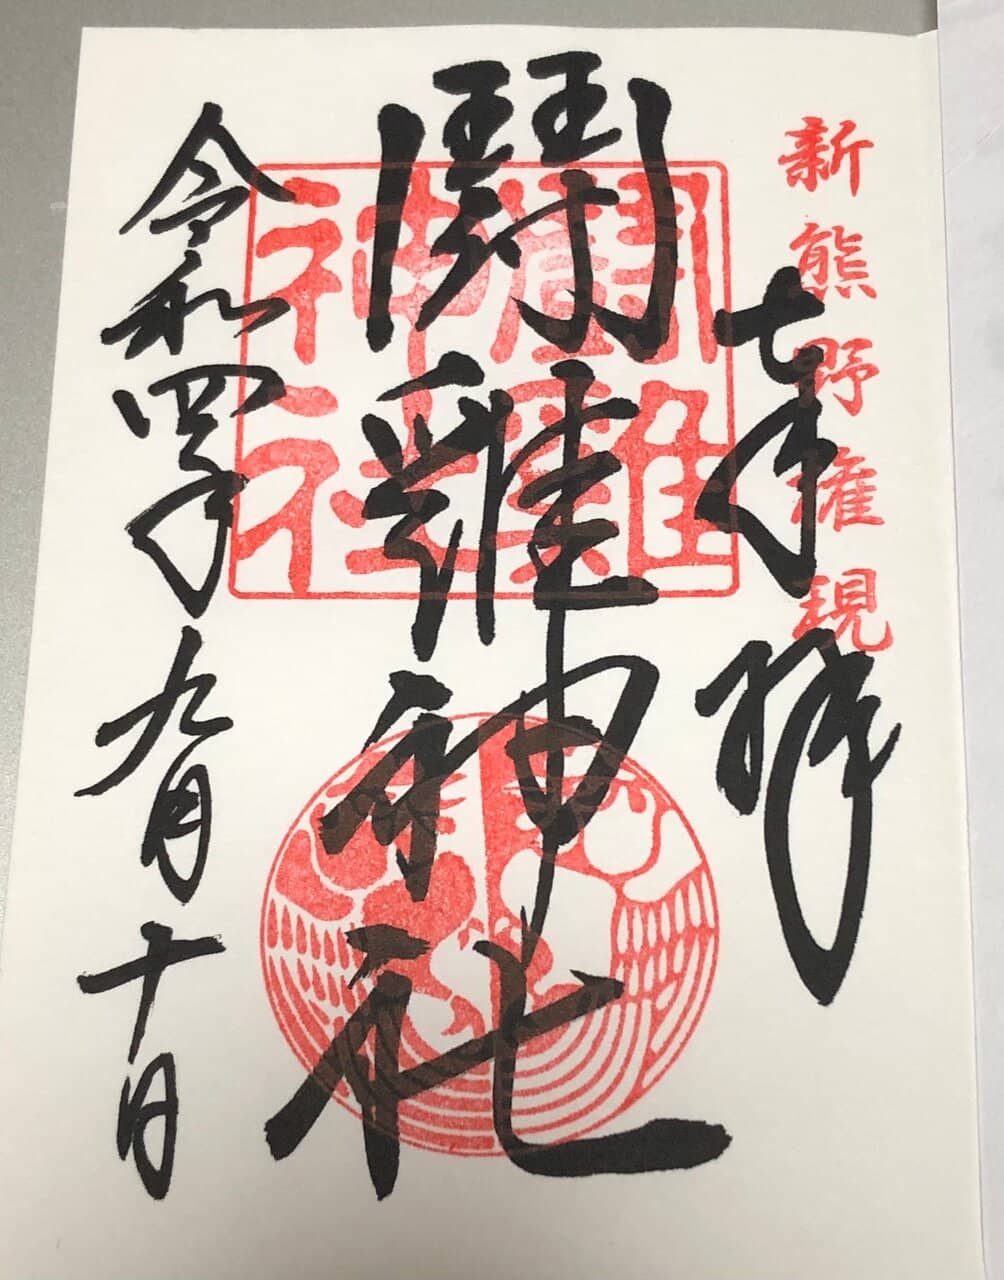 新熊野権現
奉拝
闘雞神社
闘雞神社
令和四年九月十日